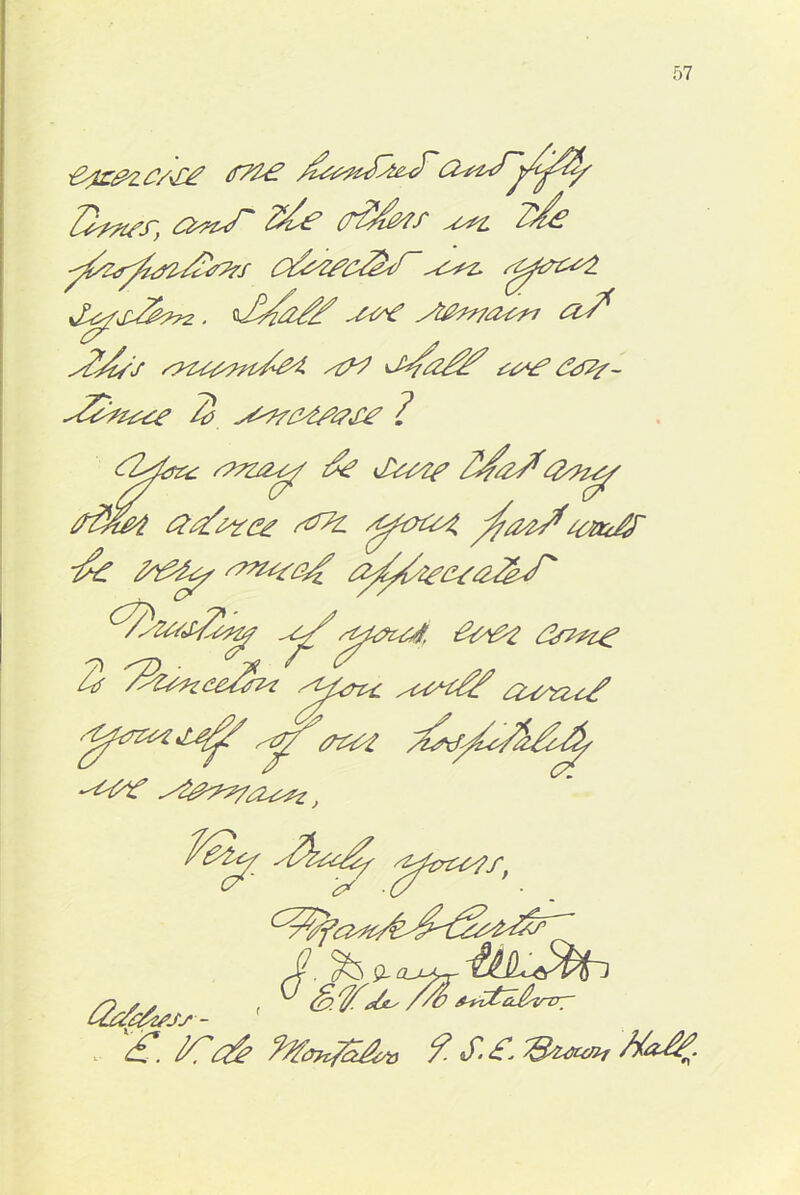 57
exercise one hundred and fifty
times, and the others in the
proportions directed in your
System. Shall we remain at
this number or shall we con-
tinue to increase?
You may be sure that any
other advice on your part would
be very much appreciated
Trusting if your, ever come
to Princeton you will avail
yourself of our hospitality
we remain,
Very truly yours,
Frank L.
J.
E.V. de Montalvo
Address-
E. V. de Montalvo 9. S.E. Brown Hall.